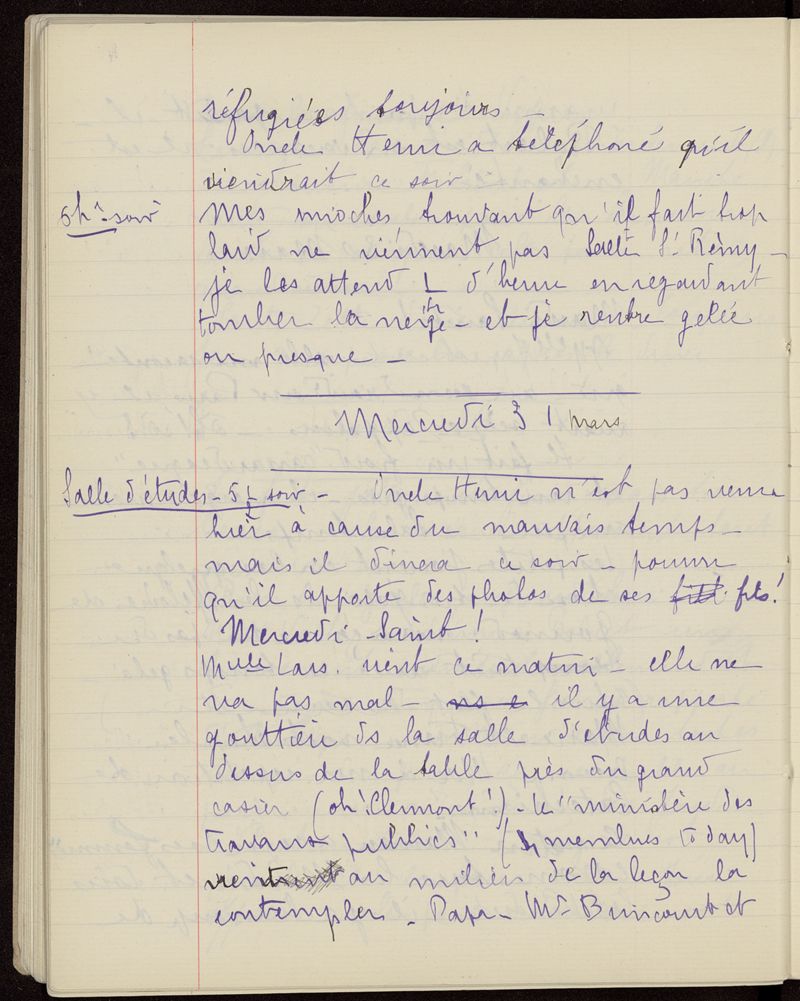 réfugiées toujours —
Oncle Henri a téléphoné qu'il
viendrait ce soir
5h soir Mes mioches trouvant qu'il fait trop
laid ne viennent pas Salle St Rémy —
je les attend 1/2 d'heure en regardant
tomber la neige — et je rentre gelée
ou presque —
Mercredi 31 mars
Salle d'études — 5 1/2 soir — Oncle Henri n'est pas venu
hier à cause du mauvais temps —
mais il dinera ce soir — pourvu
qu'il apporte des photos de ses fils!
Mercredi-Saint!
Melle Lars. vient ce matin — elle ne
va pas mal — il y a une
gouttière ds la salle d'études au
dessus de la table près du grand
casier (oh! Clermont!) — le "ministère des
travaux publics" (4 membres to day)
vient au milieu de la leçon la
contempler — Papa — Mr. et